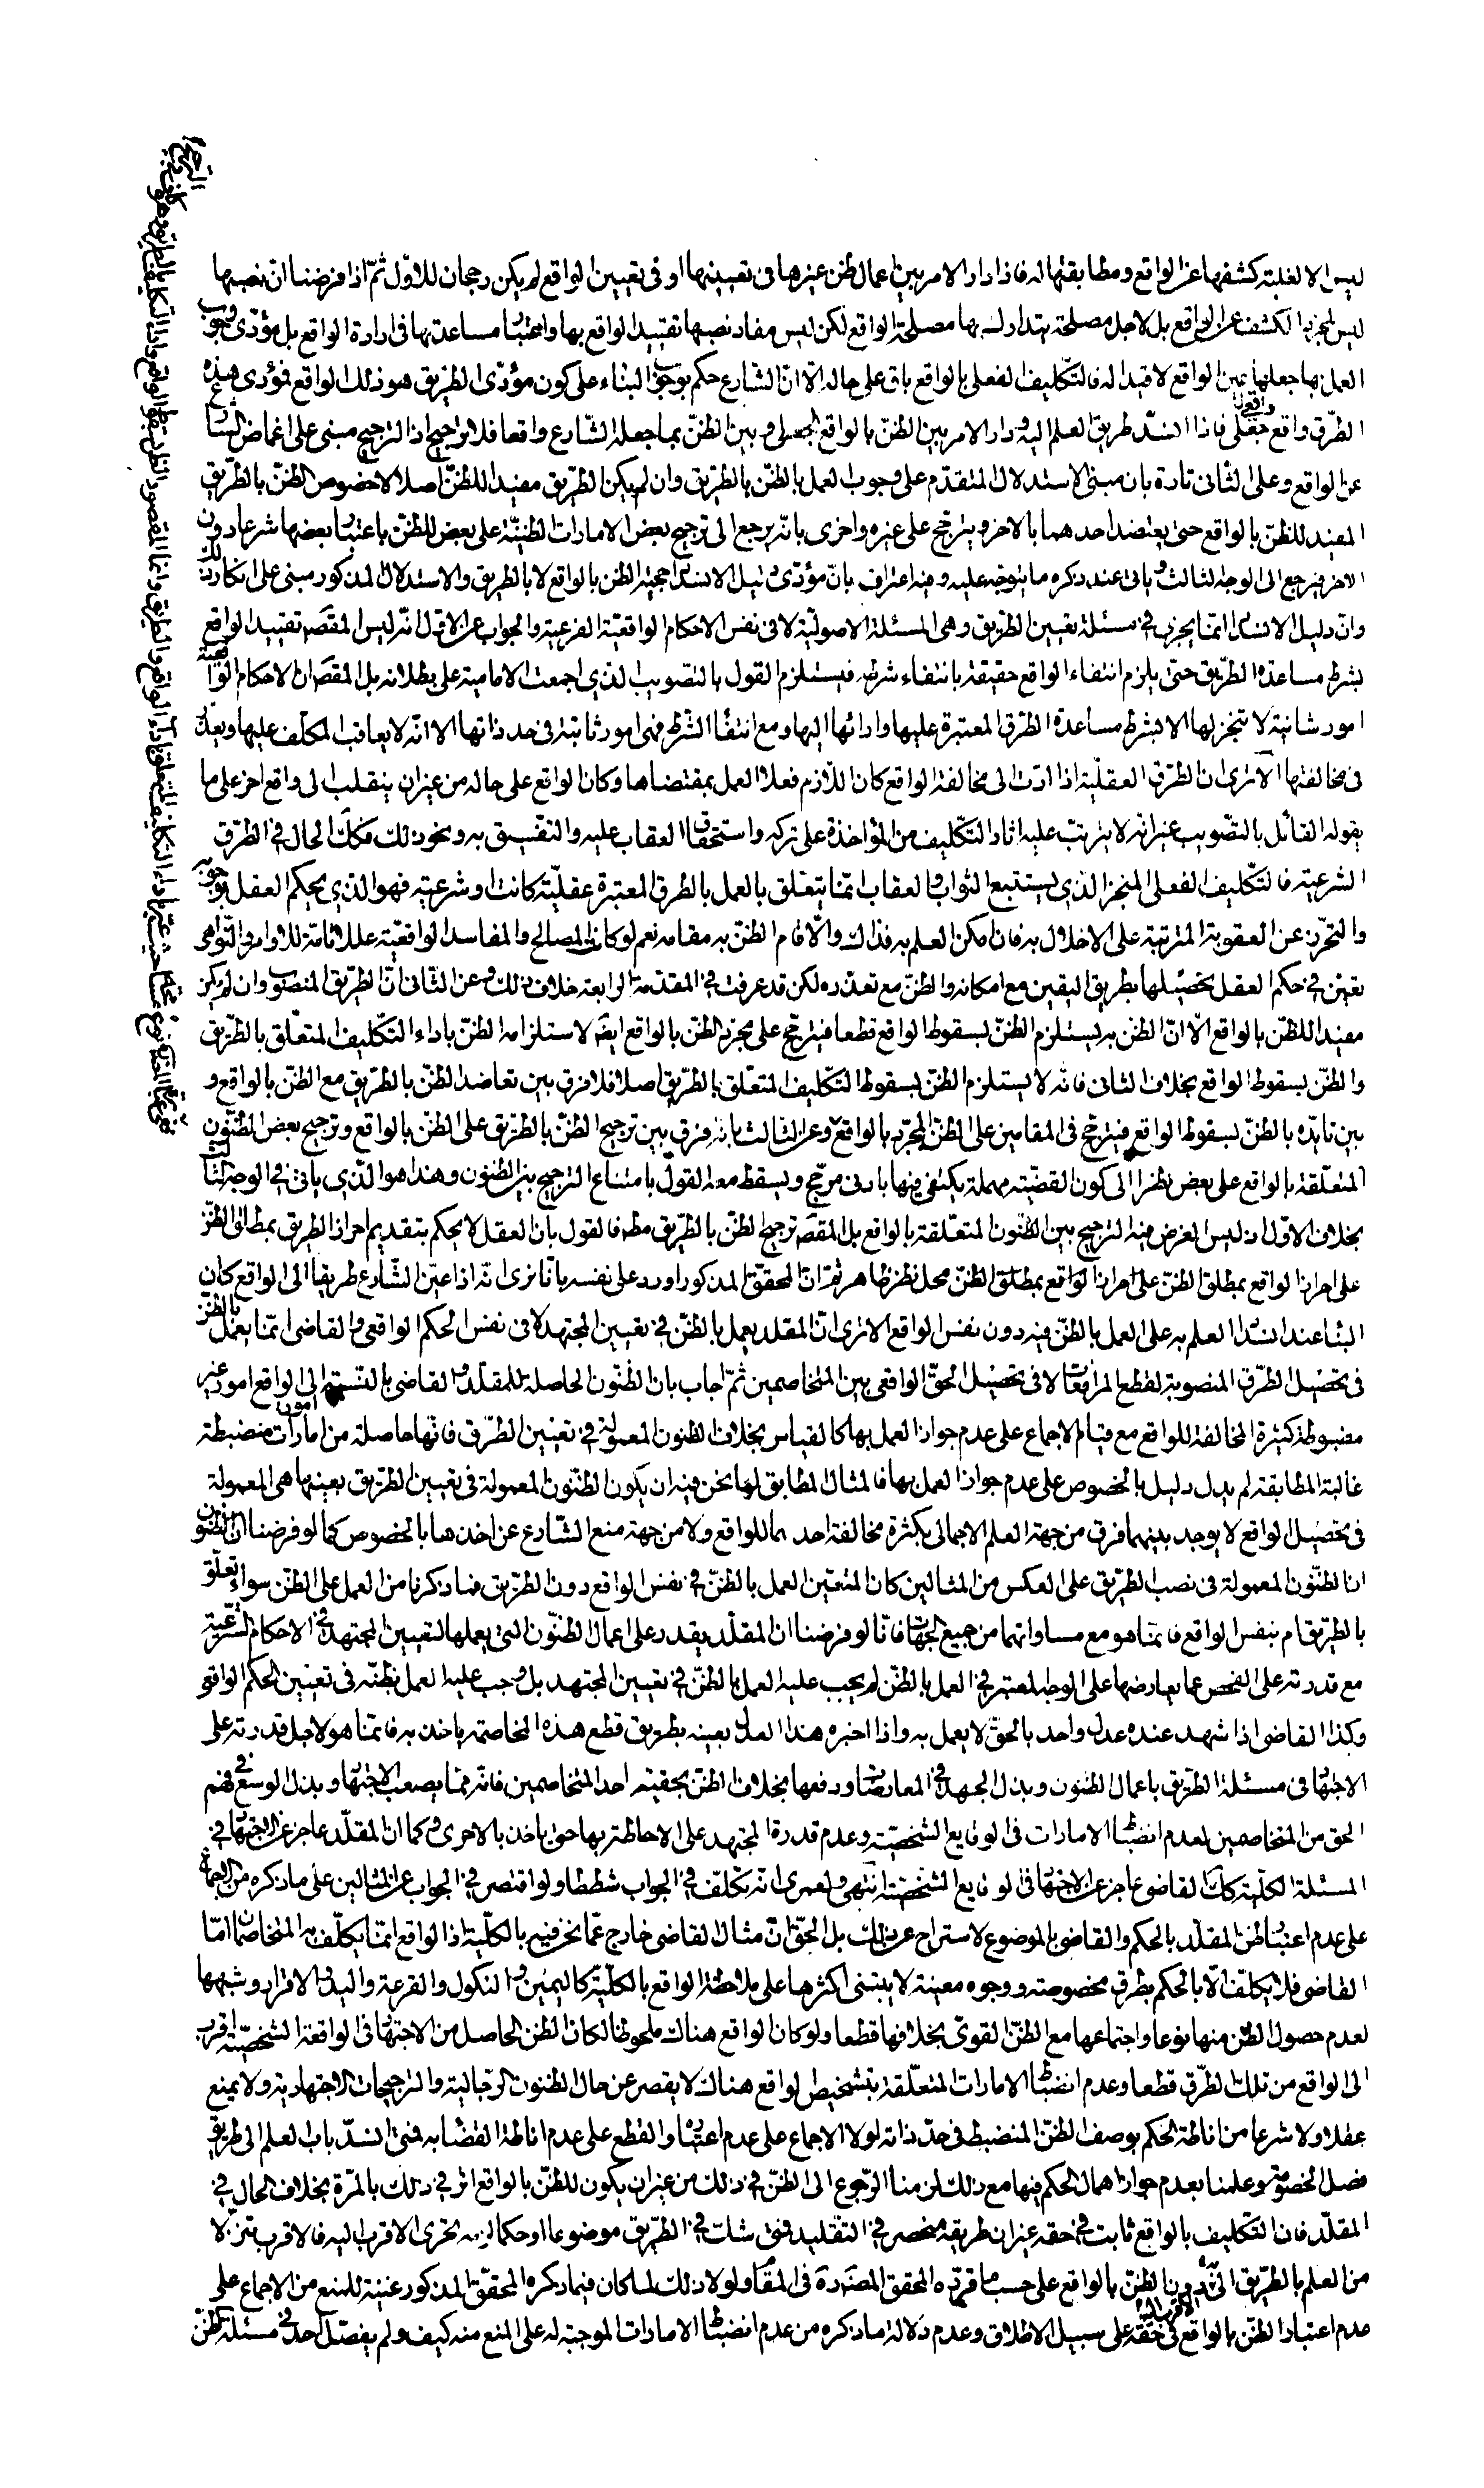 ليس الا لغلبة كشفها عن الواقع ومطابقتها له فاذا دار الامر بين اعمال ظن غيرها فى تعيينها او فى تعيين الواقع لم يكن رجحان للاوّل ثمّ اذا فرضنا انّ نصبها
ليس لمجرد الكشف عن الواقع بل لاجل مصلحة يتدارك بها مصلحة الواقع لكن ليس مفاد نصبها تقييد الواقع بها واعتبار مساعدتها فى ارادة الواقع بل مؤدّى وجوب
العمل بها جعلها عين الواقع لا قيدا له فالتّكليف الفعلى بالواقع باق على حاله الّا انّ الشارع حكم بوجوب البناء على كون مؤدّى الطّريق هو ذلك الواقع فمؤدى هذه
الطّرق واقع جعلى فاذا انسدّ طريق العلم اليه ودار الامر بين الظنّ بالواقع الجعلى وبين الظنّ بما جعله الشّارع واقعا فلا ترجيح اذ الترجيح مبنى على اغماض الشارع
عن الواقع وعلى الثانى تارة بان مبنى الاستدلال المتقدّم على وجوب العمل بالظنّ بالطّريق وان لم يكن الطّريق مفيدا للظنّ اصلا لا خصوص الظنّ بالطّريق
المفيد للظنّ بالواقع حتى يعتضد احدهما بالاخر ويترجّح على غيره واخرى بانّه يرجع الى ترجيح بعض الامارات الظنيّة على بعض للظنّ باعتبار بعضها شرعا دون
الاخر فيرجع الى الوجه الثالث وياتى عند ذكره ما يتوجّه عليه وفيه اعتراف بانّ مؤدّى دليل الانسداد حجيّة الظن بالواقع لا بالطريق والاستدلال المذكور مبنى على انكار ذلك
وانّ دليل الانسداد انمّا يجرى فى مسئلة تعيين الطّريق وهى المسئلة الاصوليّة لا فى نفس الاحكام الواقعيّة الفرعية والجواب عن الاوّل انّه ليس المقصَ تقييد الواقع
بشرط مساعدة الطّريق حتى يلزم انتفاء الواقع حقيقة بانتفاء شرطه فيستلزم القول بالتصويب الذى اجمعت الامامية على بطلانه بل المقصَ ان الاحكام الواقعية
امور شانية لا تتنجز لها الا بشرط مساعدة الطّرق المعتبرة عليها وادائها اليها ومع انتفاء الشّرط فهى امور ثابتة فى حد ذاتها الا انّه لا يعاقب المكلّف عليها ويعذر
فى مخالفتها الا ترى ان الطّرق العقليّة اذا ادّت الى مخالفة الواقع كان اللّازم فعلا العمل بمقتضاها وكان الواقع على حاله من غير ان ينقلب الى واقع اخر على ما
يقوله القائل بالتصّويب غير انّه لا يترتب عليه اثار التّكليف من المؤاخذة على تركه واستحقاق العقاب عليه والتفسيق به ونحو ذلك فكك الحال فى الطّرق
الشرعية فالتّكليف الفعلى المنجز الذى يستتبع الثواب والعقاب انمّا يتعلق بالعمل بالطرق المعتبرة عقليّة كانت او شرعية فهو الذى يحكم العقل بوجوبه
والتحرّز عن العقوبة المترتبة على الاخلال به فان امكن العلم به فذاك والّا قام الظنّ به مقامه نعم لو كان المصالح والمفاسد الواقعيّة عللا تامّة للاوامر والنّواهى
يعتين فى حكم العقل تحصيلها بطريق اليقين مع امكانه والظنّ مع تعذره لكن قد عرفت فى المقدّمة الرابعة خلاف ذلك وعن الثانى انّ الطّريق المنصوب وان لم يكن
مفيدا للظنّ بالواقع الّا انّ الظنّ به يستلزم الظنّ بسقوط الواقع قطعا فيترجّح على مجرد الظنّ بالواقع ايضَ لاستلزامه الظنّ باداء التّكليف المتعلّق بالطّريق
والظنّ بسقوط الواقع بخلاف الثانى فانّه لا يستلزم الظنّ بسقوط التكليف المتعلّق بالطّريق اصلا فلا فرق بين تعاضد الظنّ بالطّريق مع الظنّ بالواقع و
بين تايّده بالظنّ بسقوط الواقع فيترجّح فى المقامين على الظنّ المجرّد بالواقع وعن الثالث بانّه فرق بين ترجيح الظنّ بالطّريق على الظنّ بالواقع وترجيح بعض الظّنون
المتعلّقة بالواقع على بعض نظرا الى كون القضيّة مهملة يكتفى فيها بادنى مرجّح ويسقط معه القول بامتناع الترجيح بين الظنون وهذا هو الّذى ياتى فى الوجه الثالث
بخلاف الاوّل اذ ليس الغرض فيه الترجيح بين الظّنون المتعلّقة بالواقع بل المقصَ ترجيح الظنّ بالطّريق مطَ فالقول بان العقل لا يحكم بتقديم احراز الطريق بمطلق الظنّ
على احراز الواقع بمطلق الظنّ على احراز الواقع بمطلق الظنّ محل نظر ظاهر ثمّ انّ المحقّق المذكور اورد على نفسه بانّا نرى انّه اذا عيّن الشّارع طريقا الى الواقع كان
البناء عند انسداد العلم به على العمل بالظنّ فيه دون نفس الواقع الا ترى انّ المقلد يعمل بالظنّ فى تعيين المجتهد لا فى نفس الحكم الواقعى والقاضى انّما يعمل بالظنّ
فى تحصيل الطّرق المنصوبة لقطع المرافعات لا فى تحصيل الحقّ الواقعى بين المتخاصمين ثمّ اجاب بان الظنون الحاصلة للمقلّد والقاضى بالنّسبة الى الواقع امور غير
مضبوطة كثيرة المخالفة للواقع مع قيام الاجماع على عدم جواز العمل بها كالقياس بخلاف الظنون المعمولة فى تعيين الطّرق فانّها حاصلة من امارات منضبطة
غالبة المطابقة لم يدل دليل بالخصوص على عدم جواز العمل بها فالمثال المطابق لما نحن فيه ان يكون الظنّون المعمولة فى تعيين الطّريق بعينها هى المعمولة
فى تحصيل الواقع لا يوجد بينهما فرق من جهة العلم الاجمالى بكثرة مخالفة احدهما للواقع ولا من جهة منع الشّارع عن احدهما بالخصوص كما لو فرضنا انّ الظنون
انّ الظنّون المعمولة فى نصب الطّريق على العكس من المثالين كان المتعيّن العمل بالظنّ فى نفس الواقع دون الطّريق فما ذكرنا من العمل على الظنّ سواء تعلّق
بالطريق ام بنفس الواقع فانمّا هو مع مساواتهما من جميع الجهات فانّا لو فرضنا ان المقلّد يقدر على اعمال الظّنون التى يعملها لتعيين المجتهد فى الاحكام الشّرعيّة
مع قدرته على الفحص عما يعارضها على الوجه المعتبر فى العمل بالظنّ لم يجب عليه العمل بالظنّ فى تعيين المجتهد بل وجب عليه العمل بظنّه فى تعيين الحكم الواقعى
وكذا القاضى اذا شهد عنده عدل واحد بالحقّ لا يعمل به واذا اخبره هذا العدل بعينه بطريق قطع هذه المخاصمة ياخذ به فانمّا هو لاجل قدرته على
الاجتهاد فى مسئلة الطّريق باعمال الظنون وبذل الجهد فى المعارضات ودفعها بخلاف الظنّ بحقيّة احد المتخاصمين فانّه ممّا يصعب الاجتهاد وبذل الوسع فى فهم
الحق من المتخاصمين لعدم انضباط الامارات فى الوقايع الشخصيّة وعدم قدرة المجتهد على الاحاطة بها حتى ياخذ بالاحرى وكما ان المقلّد عاجز عن الاجتهاد فى
المسئلة الكليّة كك القاضى عاجز عن الاجتهاد فى الوقايع الشّخصيّة انتهى ولعمرى انّه تكلّف فى الجواب شططا ولو اقتصر فى الجواب عن المثالين على ما ذكره من الاجماع
على عدم اعتبار ظن المقلّد بالحكم والقاضى بالموضوع لاستراح عن ذلك بل الحقّ انّ مثال القاضى خارج عمّا نحن فيه بالكليّة اذ الواقع انمّا يكلّف به المتخاصمان امّا
القاضى فلا يكلّف الّا بالحكم بطرق مخصوصة ووجوه معينة لا يبتنى اكثرها على ملاحظة الواقع بالكليّة كاليمين والنكول والقرعة واليد والاقرار وشبهها
لعدم حصول الظن منها نوعا واجتماعها مع الظنّ القوىّ بخلافها قطعا ولو كان الواقع هناك ملحوظا لكان الظن الحاصل من الاجتهاد فى الواقعة الشخصيّة اقرب
الى الواقع من تلك الطّرق قطعا وعدم انضباط الامارات المتعلّقة بتشخيص الواقع هناك لا يقصر عن حال الظنون الرّجالية والترجيحات الاجتهادية ولا يمنع
عقلا ولا شرعا من اناطة الحكم بوصف الظنّ المنضبط فى حدّ ذاته لولا الاجماع على عدم اعتباره والقطع على عدم اناطة القضاء به فمتى انسدّ باب العلم الى طريق
فصل الخصومة وعلمنا بعدم جواز اهمال الحكم فيها مع ذلك لزمنا الرّجوع الى الظنّ فى ذلك من غير ان يكون للظنّ بالواقع اثر فى ذلك بالمرّة بخلاف الحال فى
المقلّد فان التّكليف بالواقع ثابت فى حقه غير ان طريقه منحصر فى التقليد فمتى شك فى الطّريق موضوعا او حكما لزمه تحرى الاقرب اليه فالاقرب تنزّلا
من العلم بالطّريق الى دون الظنّ بالواقع على حسب ما قرّره المحقق المصدر فى المقام ولولا ذلك لما كان فيما ذكره المحقّق المذكور غنية للمنع من الاجماع على
عدم اعتبار الظنّ بالواقع فى حقه على سبيل الاطلاق وعدم دلالة ما ذكره من عدم انضباط الامارات الموجبة له على المنع منه كيف ولم يفصّل احد فى مسئلة الظنّ